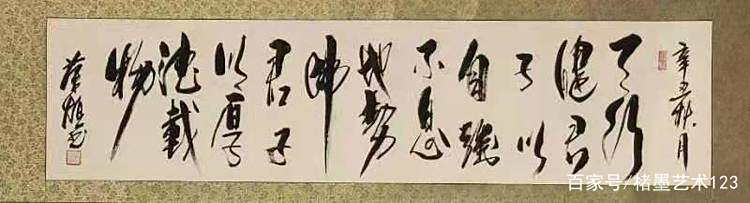 辛丑秋月
天行
健君
子以
自强
不息
地势
坤
君子
以厚
德载
物
百家号/楮墨艺术123